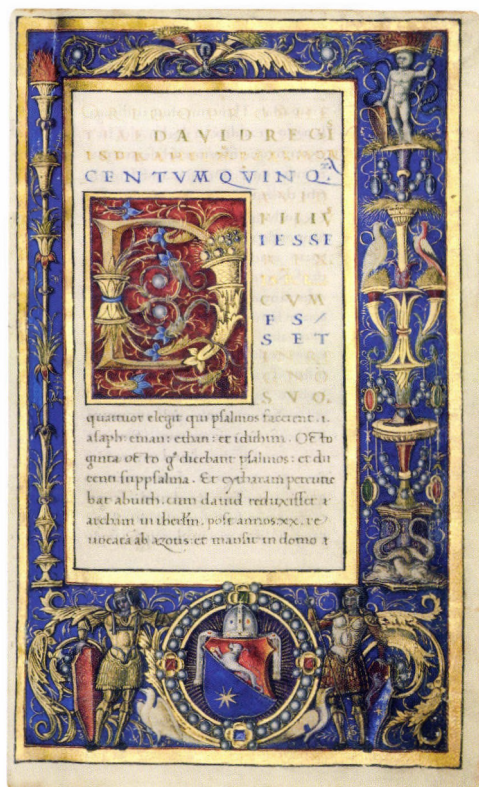 DAVID REGĪ
CENTVM QVINQ.
FILIV
IESSE
CVM
ES/
SET
IN RE
GNO
SVO.
quattuor elegit qui psalmos facerent. i.
asaph: eman: ethan: et idithim. Octo
ginta octo gº dicebant psalmos: et du
centi suppsalma. Et cytharam percutie
bat abiuth. cum david reduxisset
archam in iherłm. post annos. xx. re
vocatā ab azotis: et mansit in domo